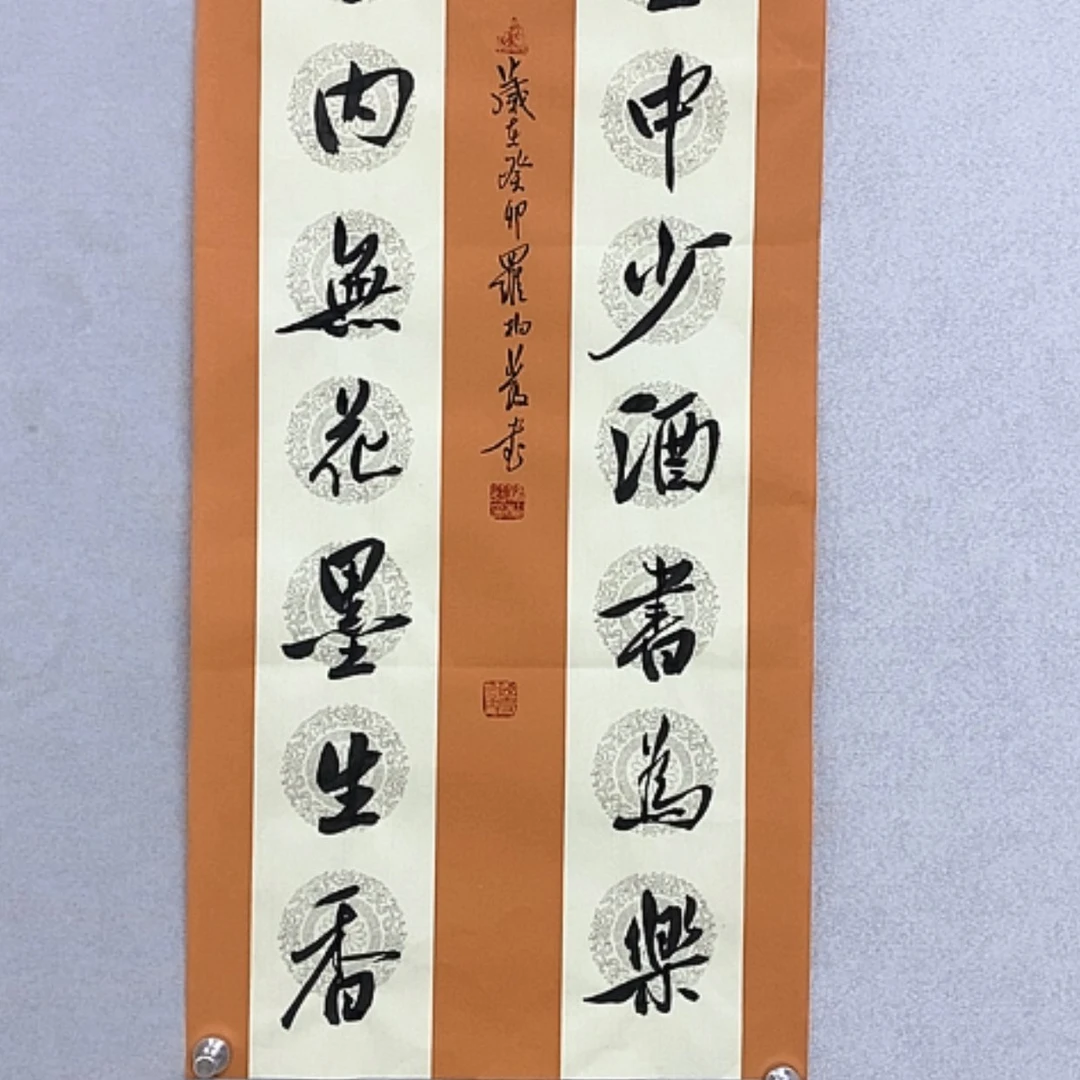 中少酒書為樂
歲在癸卯羅
書
内無花墨生香